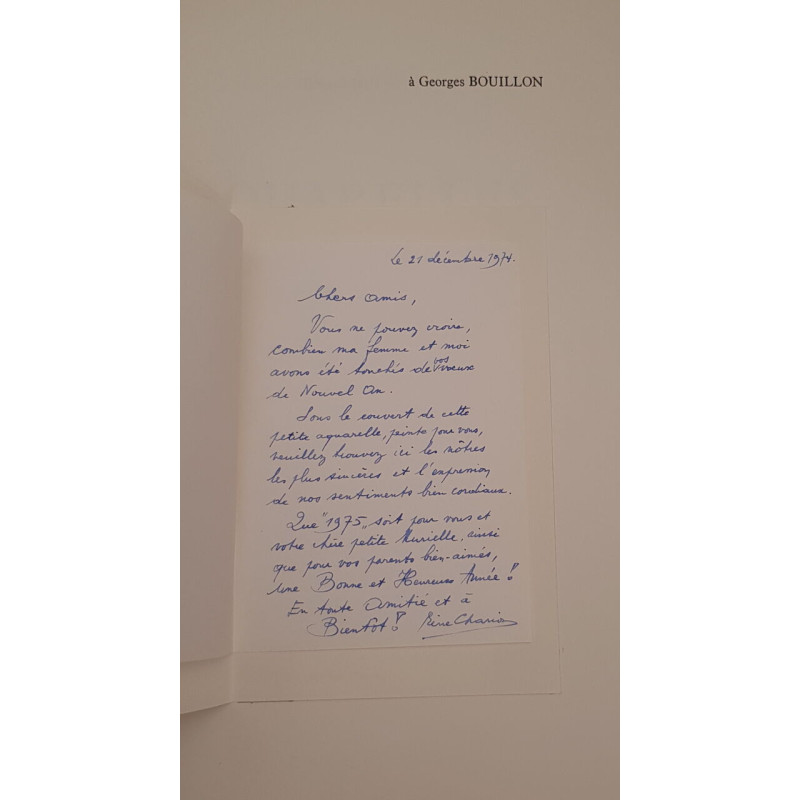 à Georges BOUILLON
Le 21 décembre 1974.
Chers amis,
Vous ne pouvez croire,
combien ma femme et moi
avons été touchés de vos voeux
de Nouvel An.
Sous le couvert de cette
petite aquarelle, peinte pour vous,
veuillez trouvez ici les nôtres
les plus sincères et l'expression
de nos sentiments bien cordiaux.
Que "1975" soit pour vous et
votre chère petite Murielle, ainsi
que pour vos parents bien-aimés,
une Bonne et Heureuse Année !!
En toute Amitié et à
Bientôt !